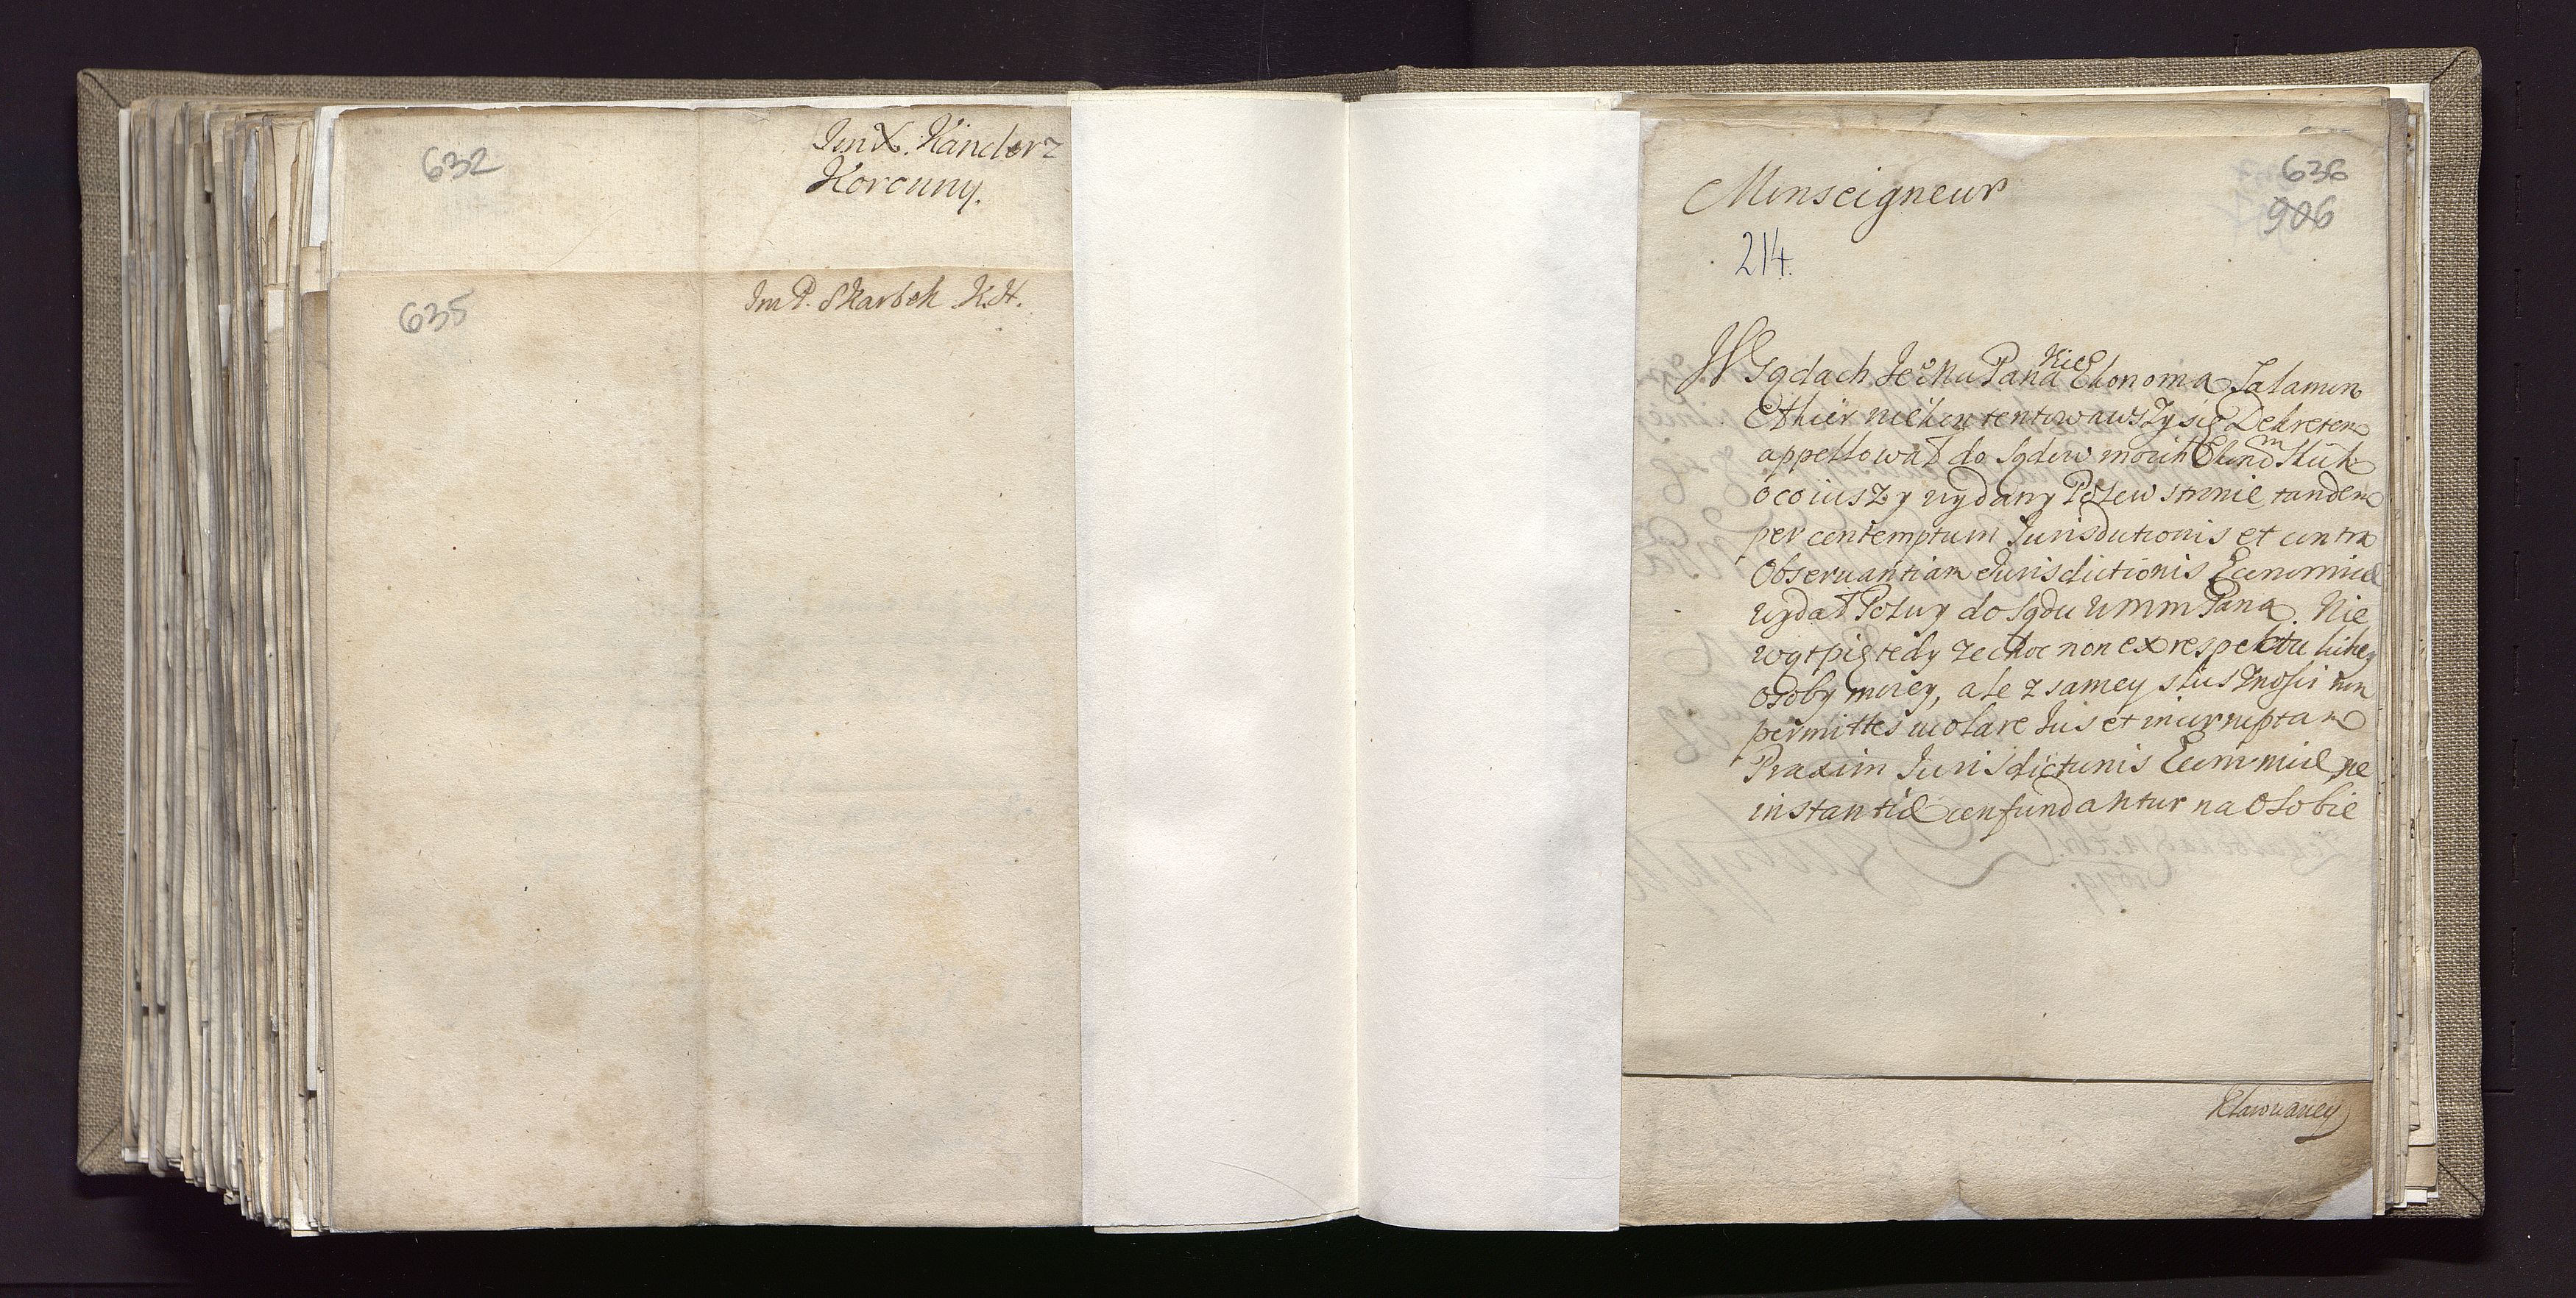 632
Jm X. Kanclerz
Koronny.
635
Jm P. Skarbek K.H.
636
906
Monseigneur
214.
W Sądach Pana Ekonoma Salamon
Ethier niekontentowawszy się Dekretem
appellował do Sądow moich
ocoiusz y wydany Pozew s tandem
per contemptum Jurisdictionis et contra
Observantiam Jurisdictionis Economice
wydał Pozwy do Sądu WmmPana. Nie
wątpię tedy ze choc non ex respektu lichey
osoby moiey, ale z samey słusznosci non
permittes violare Jus et incorruptam
Praxim Jurisdictionis Economice, ne
instantie confundantur na Osobie